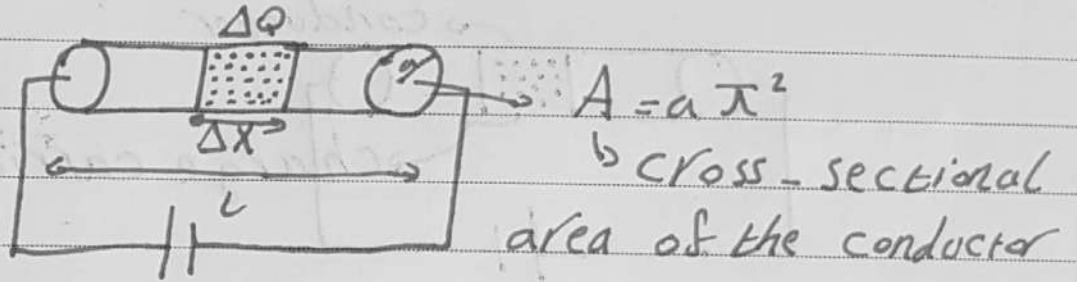 ΔQ
A = a π²
ΔX
↳ cross-sectional
L
area of the conductor